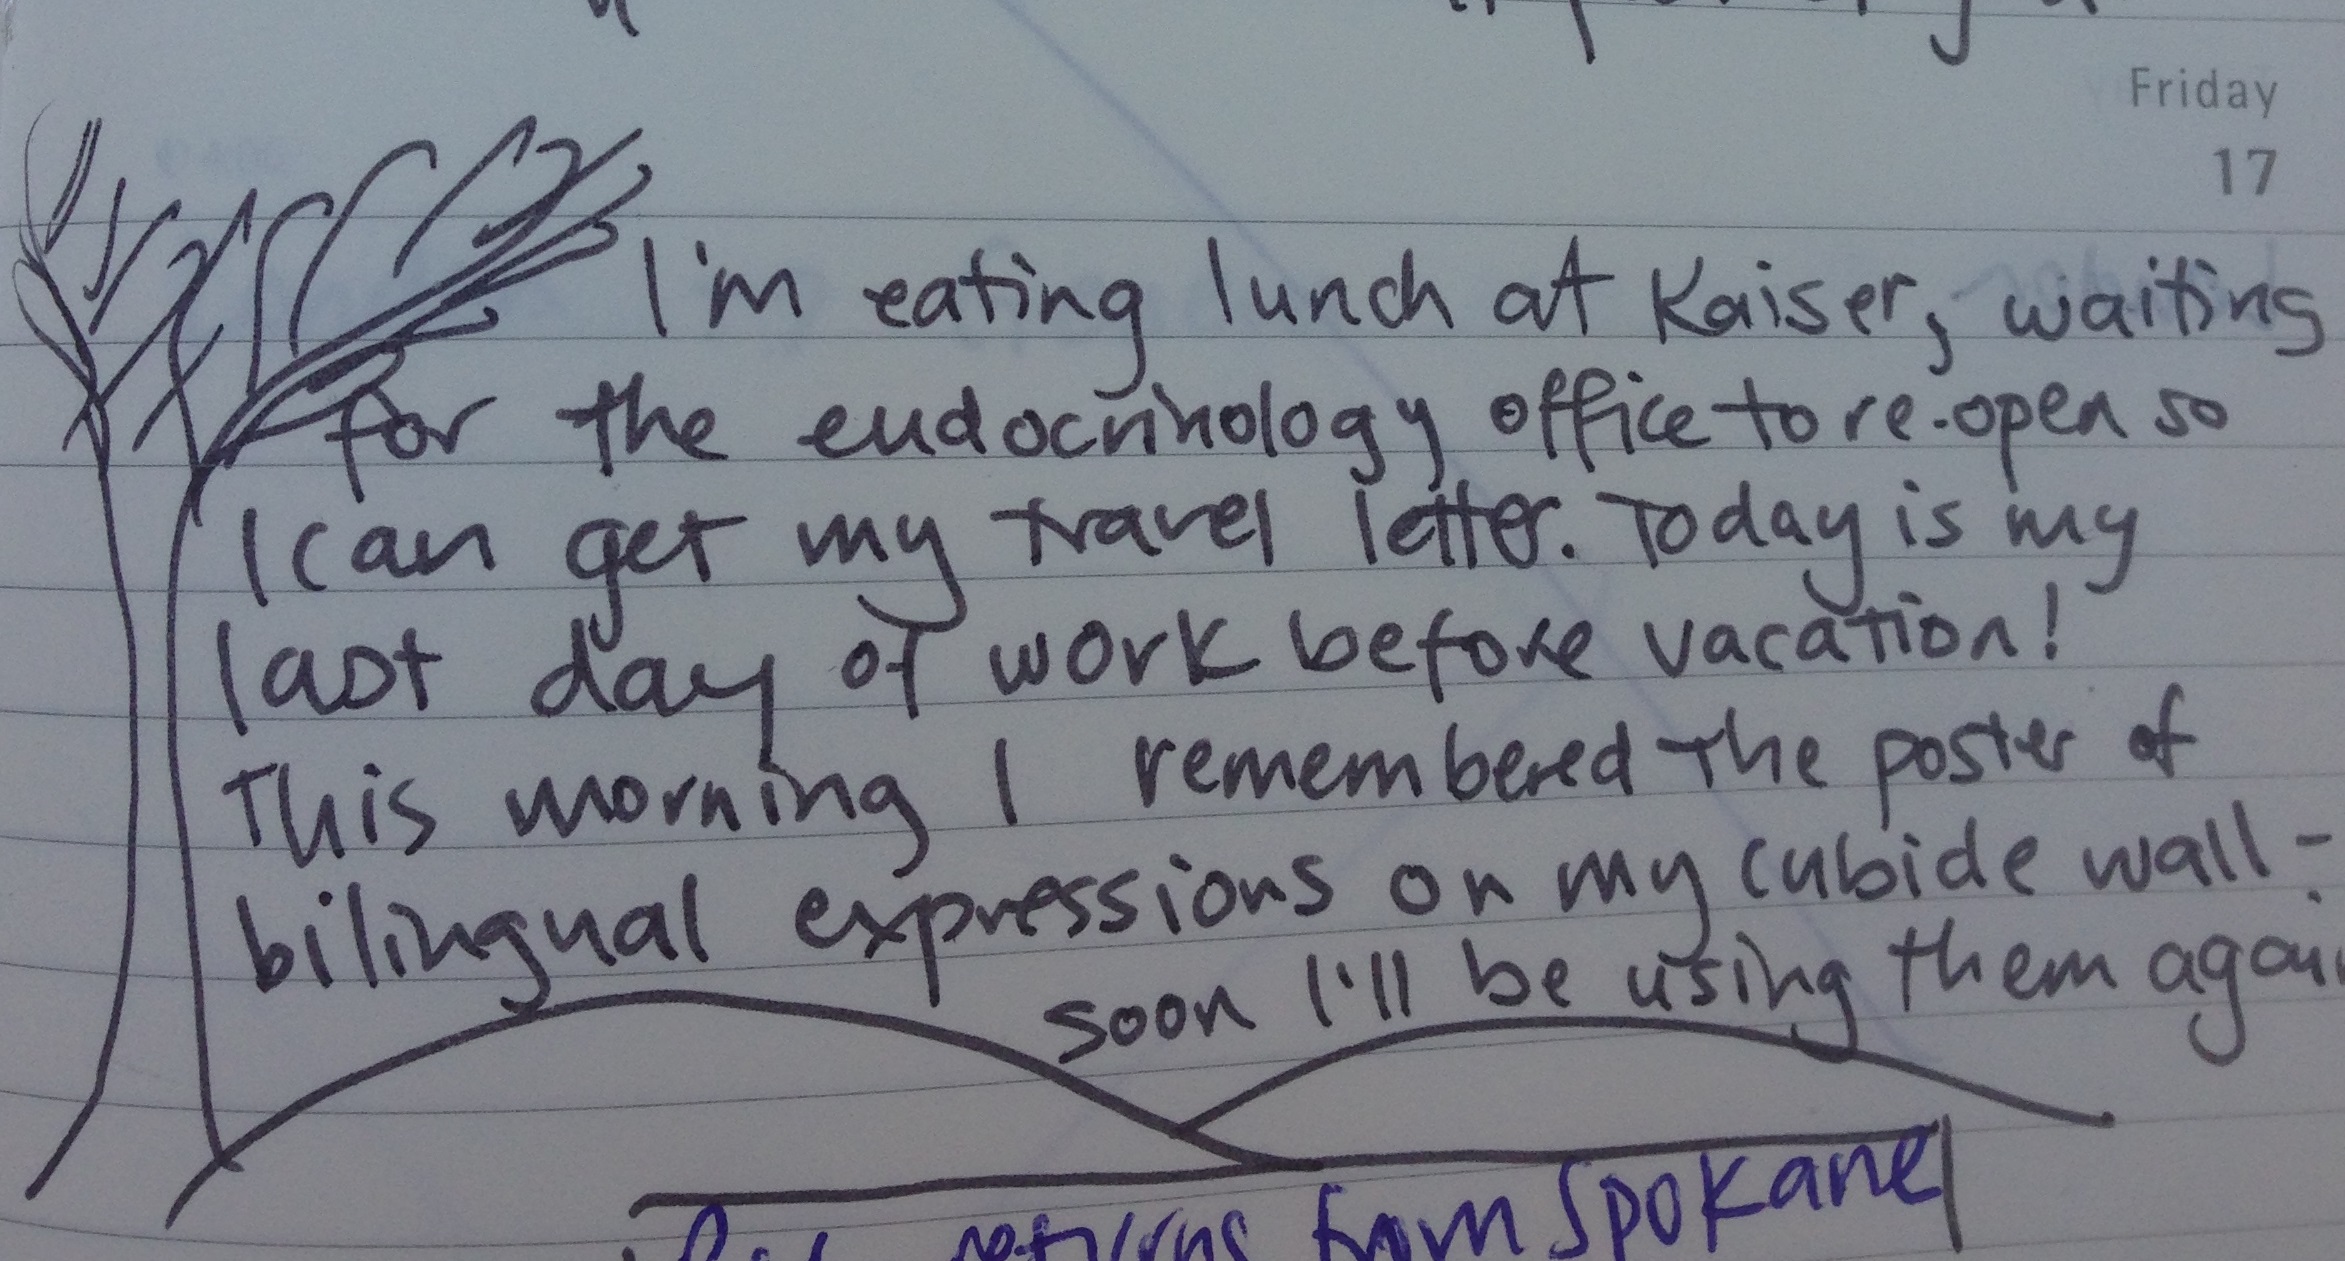 Friday
17
I'm eating lunch at Kaiser, waiting
for the endocrinology office to re-open so
I can get my travel letter. Today is my
last day of work before vacation!
This morning I remembered the poster of
bilingual expressions on my cubicle wall -
soon I'll be using them again
returns from Spokane